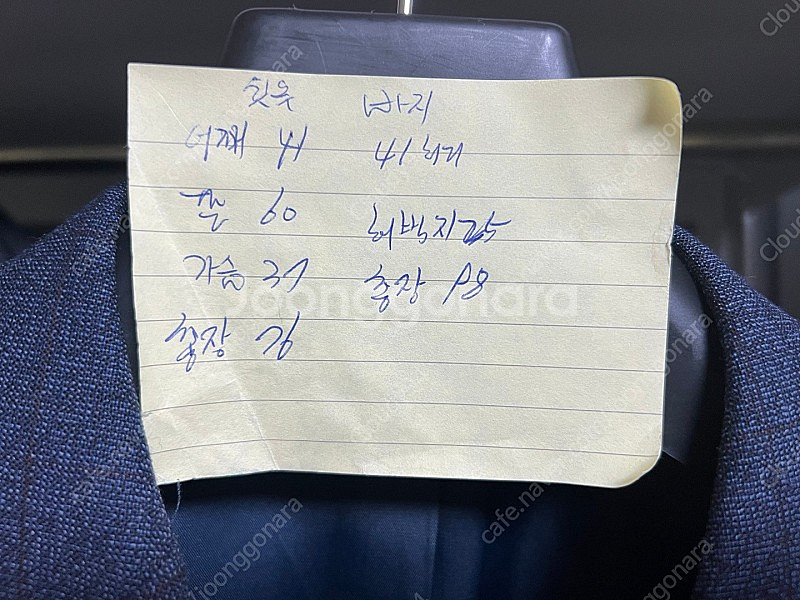 윗옷 바지
어깨 41 41 허리
팔 60
허벅지 25
가슴 37
총장 98
총장 76
Joonggonara
cafe.na
joonggonara